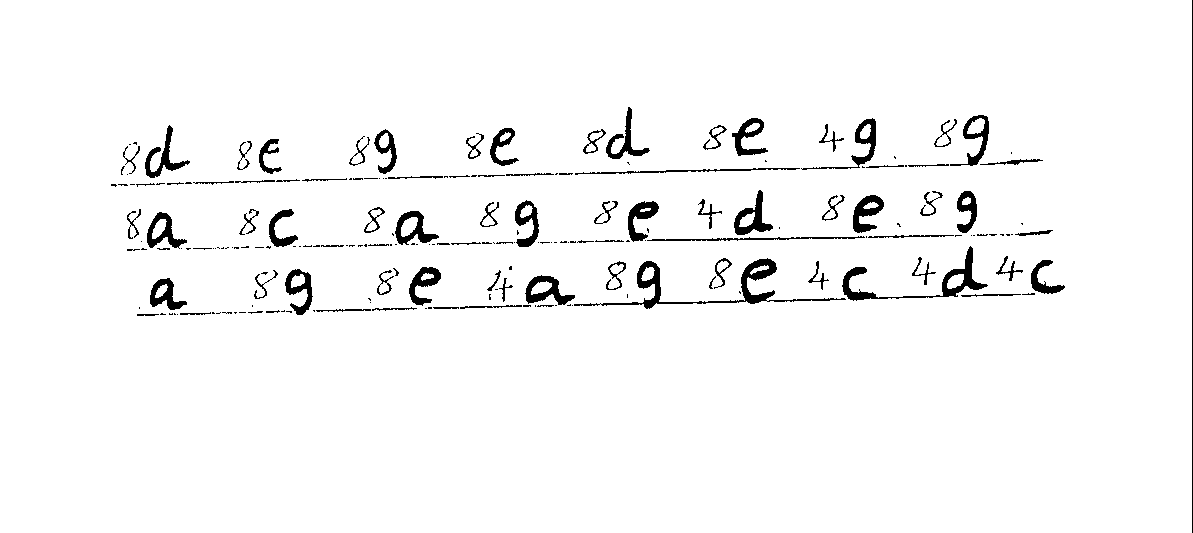 8d 8e 8g 8e 8d 8e 4g 8g
8a 8c 8a 8g 8e 4d 8e 8g
a 8g 8e 4a 8g 8e 4c 4d 4c